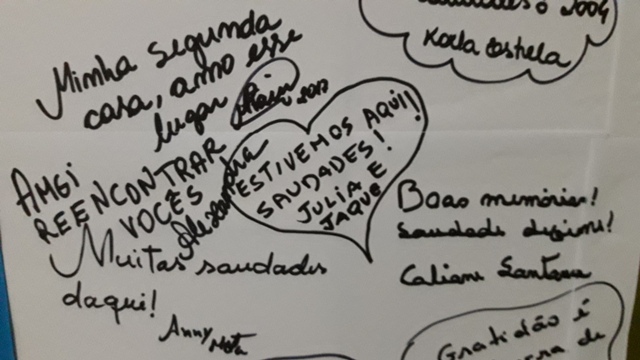 2004
Minha segunda
casa, amo esse
lugar
2017
AMEI
REENCONTRAR
VOCÊS
Alexandra
ESTIVEMOS AQUI!
SAUDADES!
JULIA E
JAQUE
Boas memórias!
Saudade
Caliane Santana
Muitas saudades
daqui!
Anny Mota
Gratidão é
de